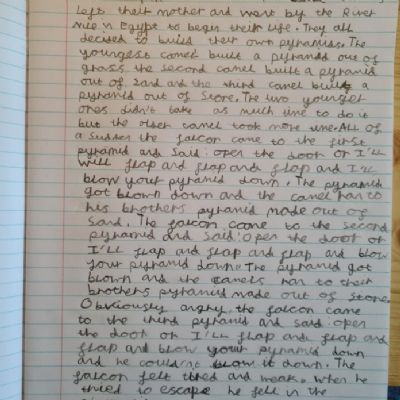 left their mother and went by the River
Nile in Egypt to begin their life. They all
decided to build their own pyramids. The
youngest camel built a pyramid out of
grass the second camel built a pyramid
out of sand and the third camel built a
pyramid out of Stone. The two younger
ones didn't take as much time to do it
but the camel took more time. All of
a sudden the falcon came to the first
pyramid and said: open the door or I'll
will flap and flap and flap and I'll
blow your pyramid down. The pyramid
got blown down and the camel ran to
his brothers pyramid made out of
Sand. The falcon came to the second
pyramid and said: open the door or
I'll flap and flap and flap and blow
your pyramid down. The pyramid got
blown and the camels ran to their
brothers pyramid made out of stone
Obviously angry, the falcon came
to the third pyramid and said: open
the door or I'll flap and flap and
flap and blow your pyramid down
and he couldn't blow it down. The
falcon felt tired and weak. When he
tried to escape he fell in the